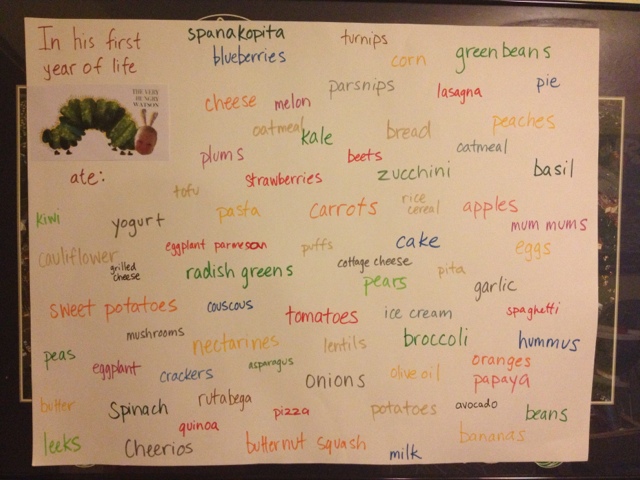 In his first
year of life
THE VERY
HUNGRY
WATSON
ate:
spanakopita
turnips
blueberries
corn
green beans
parsnips
lasagna
pie
cheese
melon
oatmeal
kale
bread
peaches
plums
beets
oatmeal
strawberries
zucchini
basil
tofu
kiwi
yogurt
pasta
carrots
rice
cereal
apples
mum mums
cauliflower
eggplant parmesan
puffs
cake
eggs
grilled
cheese
radish greens
cottage cheese
pears
pita
garlic
sweet potatoes
couscous
tomatoes
ice cream
spaghetti
mushrooms
nectarines
lentils
broccoli
hummus
peas
eggplant
crackers
asparagus
onions
olive oil
oranges
papaya
butter
Spinach
rutabega
pizza
potatoes
avocado
beans
leeks
Cheerios
quinoa
butternut squash
milk
bananas